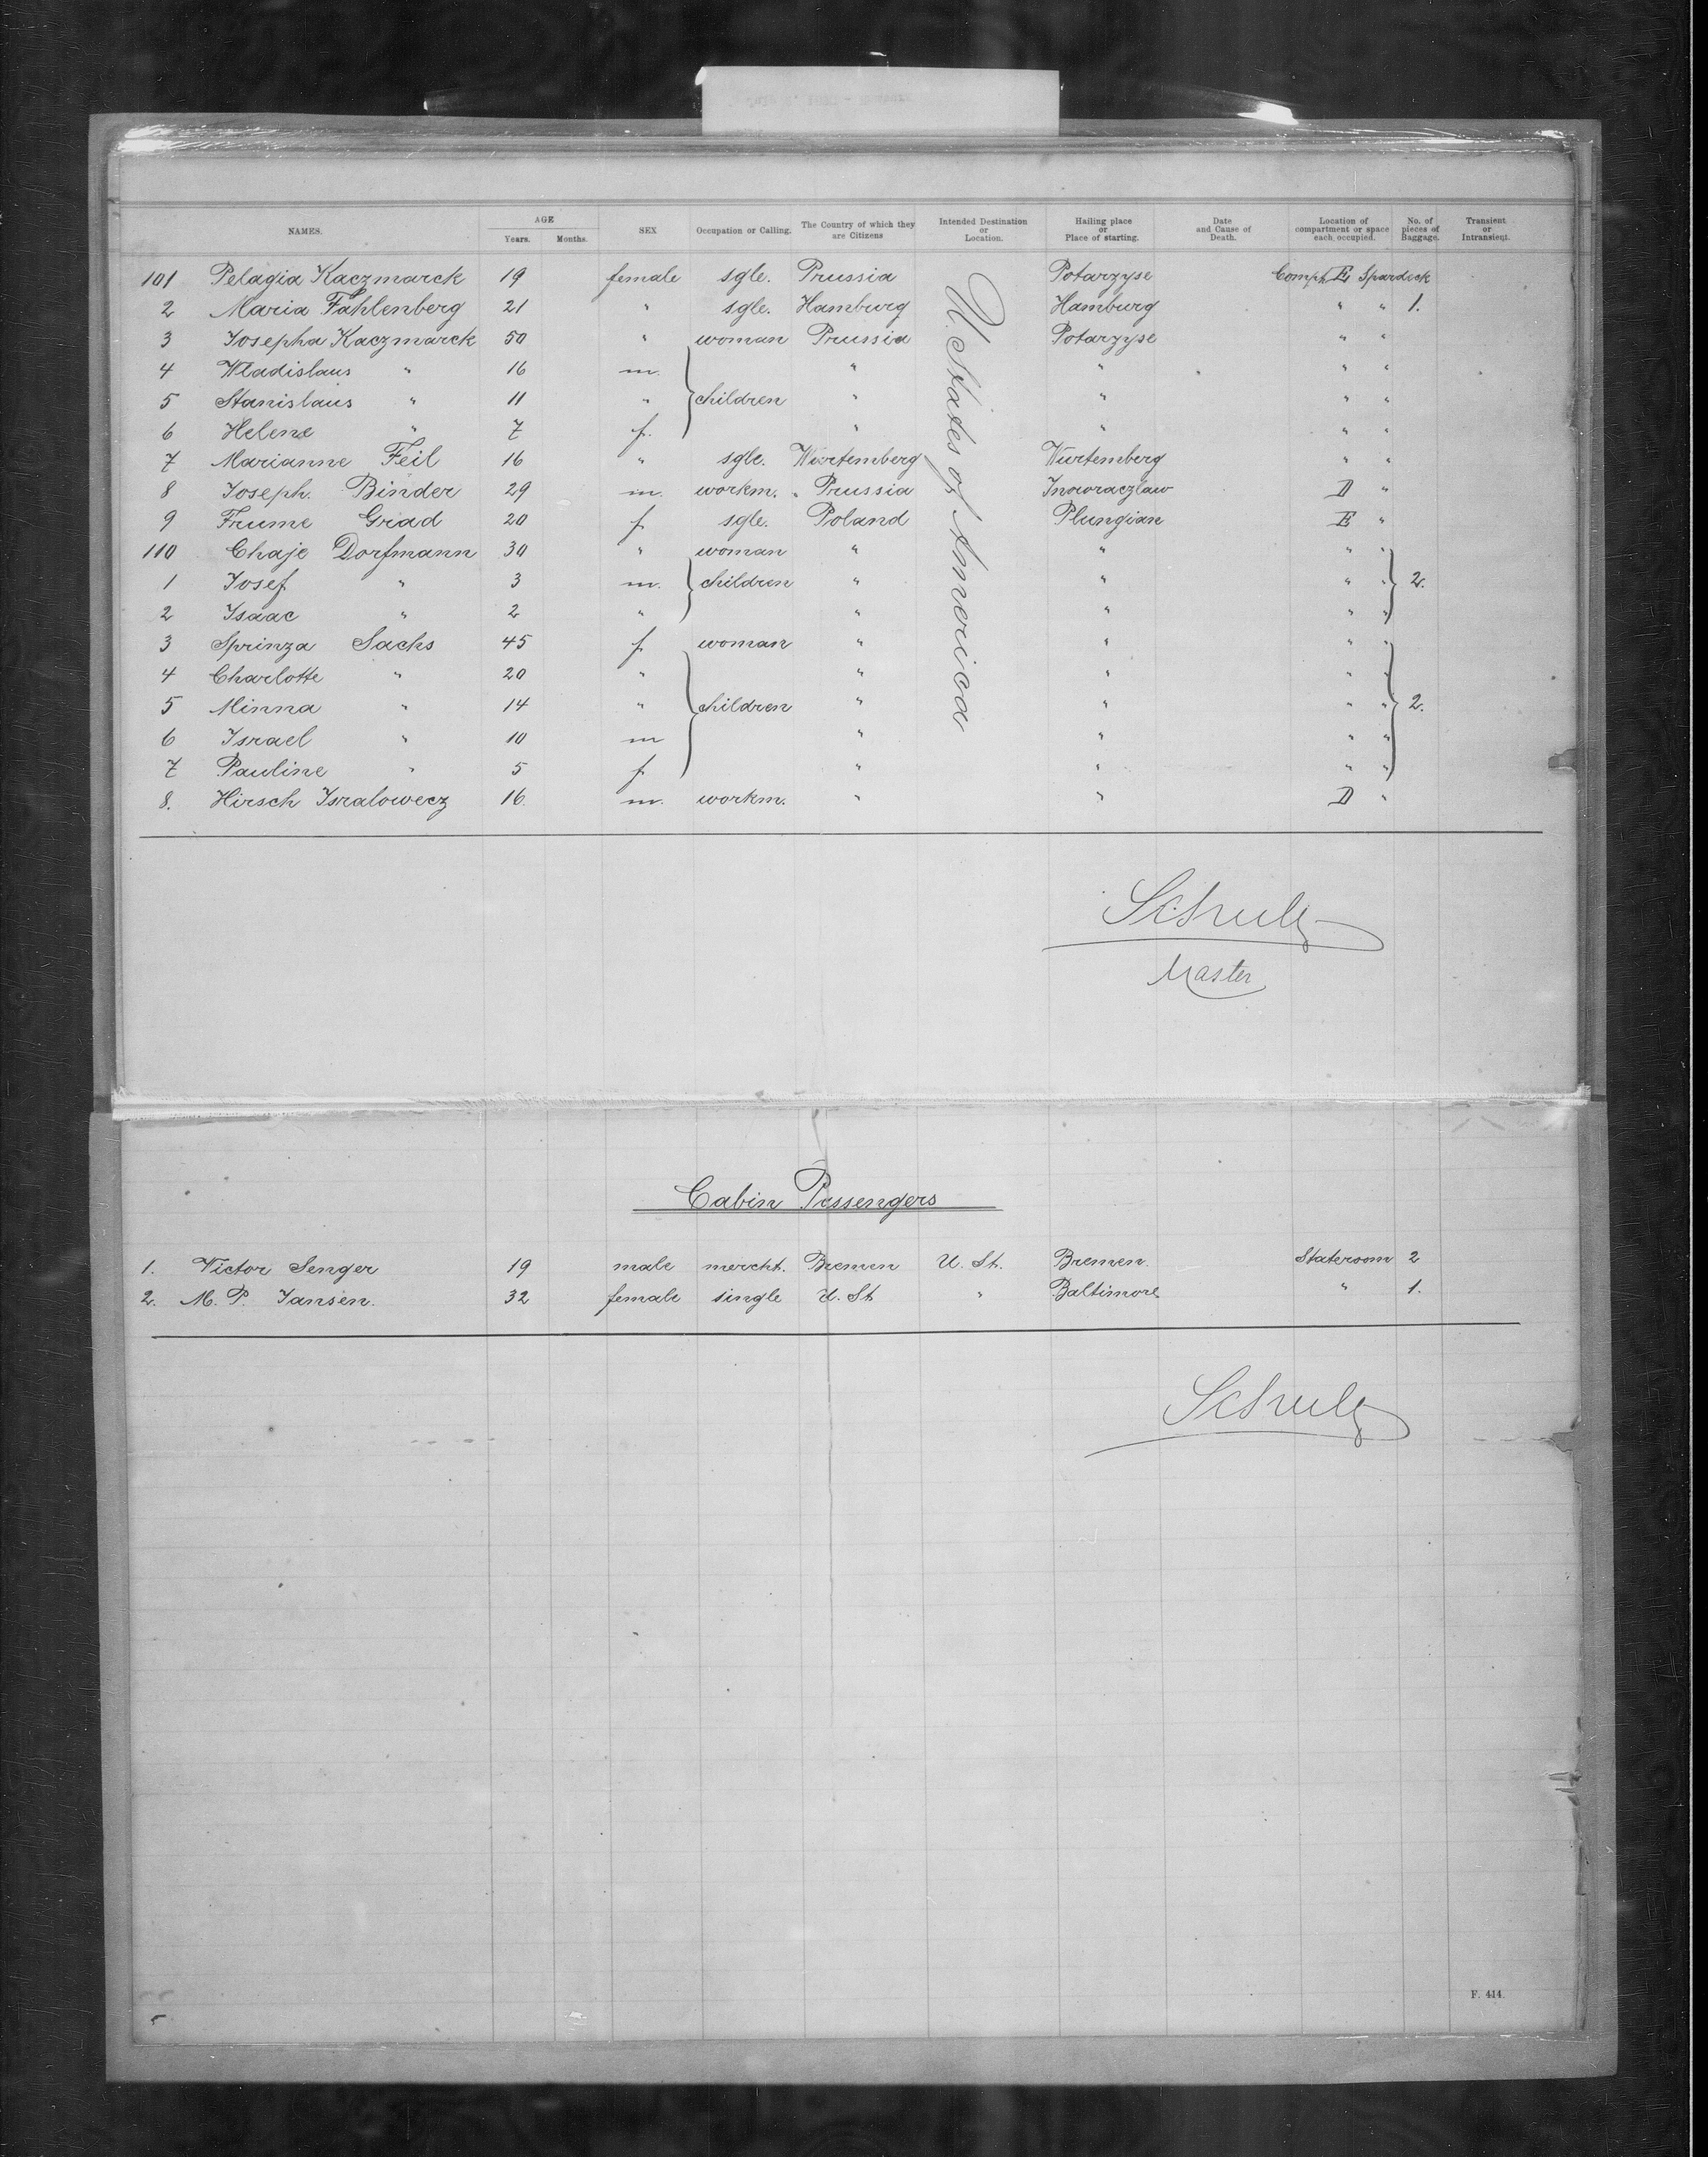 NAMES. AGE Years. Months. SEX Occupation or Calling. The Country of which they are Citizens Intended Destination or Location. Hailing place or Place of starting. Date and Cause of Death. Location of compartment or space each occupied. No. of pieces of Baggage. Transient or Intransient.
101 Pelagia Kaczmarck 19 female sgle. Prussia Potarzyse Comph E Spardeck
2 Maria Fahlenberg 21 " sgle. Hamburg Hamburg " " 1.
3 Josepha Kaczmarck 50 " woman Prussia Potarzyse " "
4 Wladislaus " 16 m. " " " "
5 Stanislaus " 11 " children " " " "
6 Helene " 7 f. " " " "
7 Marianne Feil 16 " sgle. Würtemberg Würtemberg " "
8 Joseph. Binder 29 m. workm. " Prussia Inowraczlaw D "
9 Frume Grad 20 f sgle. Poland Plungian E "
110 Chaje Dorfmann 30 " woman " " " "
1 Josef " 3 m. children " " " " 2.
2 Isaac " 2 " " " " "
3 Sprinza Sachs 45 f woman " " " "
4 Charlotte " 20 " " " " "
5 Minna " 14 " children " " " " 2.
6 Israel " 10 m " " " "
7 Pauline " 5 f " " " "
8. Hirsch Isralowecz 16. m. workm. " " D "
U. States of America
Schulz
Master
Cabin Passengers
1. Victor Senger 19 male mercht. Bremen U. St. Bremen. Stateroom 2
2. M. P. Jansen. 32 female single U. St " Baltimore " 1.
Schulz
F. 414.